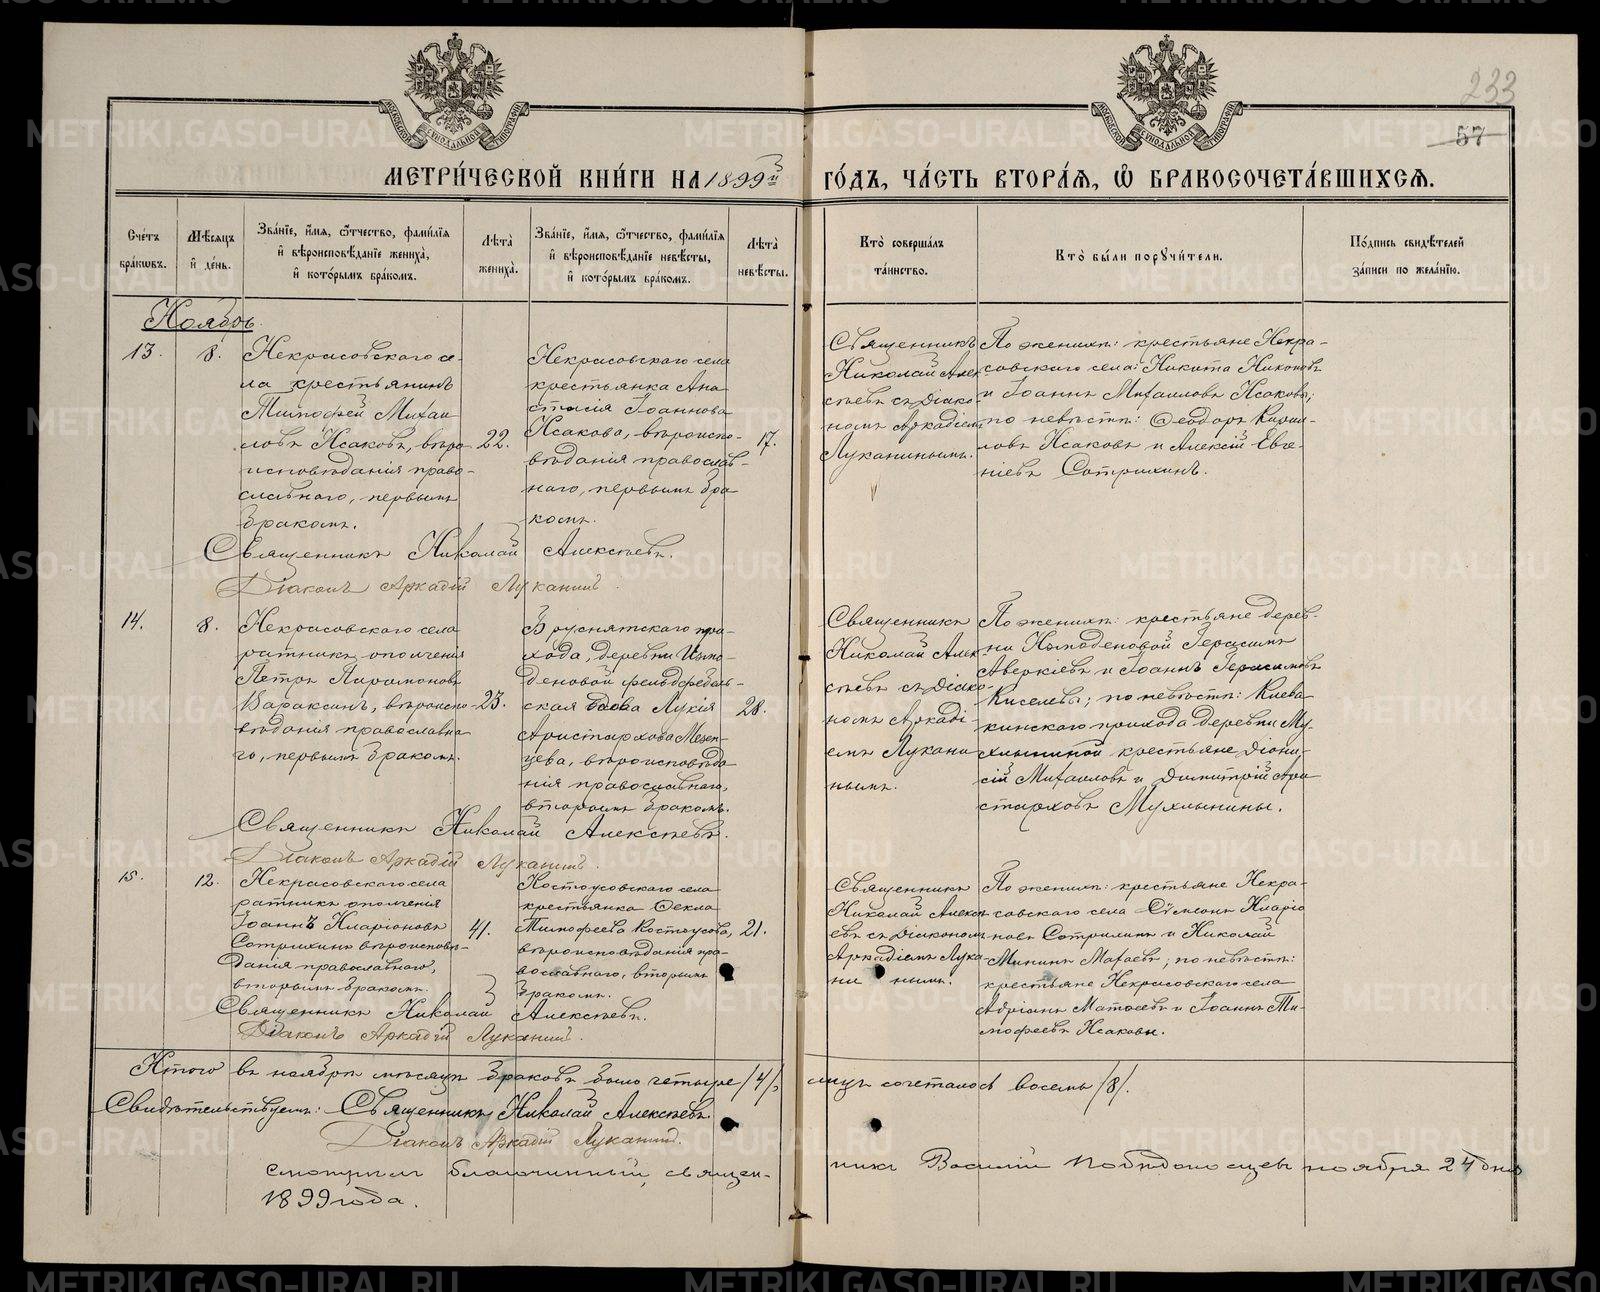 233
57
МЕТРИ́ЧЕСКОЙ КНИ́ГИ НА 1899й
ГО́ДЪ, ЧА́СТЬ ВТОРА́Я, Ѽ БРАКОСОЧЕТА́ВШИХСЯ.
Сче́тъ бра́ковъ.
Мѣ́сяцъ и҆ де́нь.
Зва́нїе, и҆́мя, ѻ҆́тчество, фами́лїя
и҆ вѣроисповѣ́данїе жениха̀,
и҆ кото́рымъ бра́комъ.
Лѣ́та жениха̀.
Зва́нїе, и҆́мя, ѻ҆́тчество, фами́лїя
и҆ вѣроисповѣ́данїе невѣ́сты,
и҆ кото́рымъ бра́комъ.
Лѣ́та невѣ́сты.
Кто̀ соверша́лъ
та́инство.
Кто̀ бы́ли порꙋчи́тели.
По́дпись свидѣ́телей
за́писи по жела́нїю.
Ноябрь
13.
8.
Некрасовскаго се-
ла крестьянинъ
Тимофей Михаи
ловъ Исаковъ, вѣро
исповѣданія право-
славнаго, первымъ
бракомъ.
22.
Некрасовскаго села
крестьянка Ана
стасія Іоаннова
Исакова, вѣроиспо-
вѣданія православ-
наго, первымъ бра
комъ.
17.
Священникъ
Николай Алек
сѣевъ съ Діако
номъ Аркадіем
Луканинымъ.
По женихѣ: крестьяне Некра-
совскаго села: Никита Никоновъ
и Іоаннъ Михаиловъ Исаковы;
по невѣстѣ: Ѳеодоръ Кирил-
ловъ Исаковъ и Алексій Евге-
ніевъ Сотрихинъ.
Священникъ Николай Алексѣевъ.
Діаконъ Аркадій Луканинъ.
14.
8.
Некрасовскаго села
ратникъ ополченія
Петръ Парамоновъ
Вараксинъ, вѣроиспо
вѣданія православна
го, первымъ бракомъ.
23.
Бруснятскаго при-
хода, деревни
деновой фельдфебель-
ская вдова Лукія
Аристархова Мезен-
цева, вѣроисповѣда
нія православнаго,
вторымъ бракомъ.
28.
Священникъ
Николай Алек
сѣевъ съ Діако-
номъ Аркаді-
емъ Лукани
нымъ.
По женихѣ: крестьяне дерев-
ни Герасимъ
Аверкіевъ и Іоаннъ Герасимовъ
Киселевы; по невѣстѣ:
кинскаго прихода деревни Му-
хлыниной крестьяне Діони-
сій Михаиловъ и Димитрій Ари
старховъ Мухлынины.
Священникъ Николай Алексѣевъ.
Діаконъ Аркадій Луканинъ.
15.
12.
Некрасовскаго села
ратникъ ополченія
Іоаннъ Иларіоновъ
Сотрихинъ вѣроисповѣ-
данія православнаго,
вторымъ бракомъ.
41.
Костоусовскаго села
крестьянка Ѳекла
Тимофеева Костоусова,
вѣроисповѣданія пра-
вославнаго, вторымъ
бракомъ.
21.
Священникъ
Николай Алексѣ
евъ съ Діакономъ
Аркадіемъ Лука-
нинымъ.
По женихѣ: крестьяне Некра-
совскаго села Сѵмеонъ Иларіо
новъ Сотрихинъ и Николай
Мининъ; по невѣстѣ:
крестьяне Некрасовскаго села
Адріанъ Матѳеевъ и Іоаннъ Ти-
мофеевъ Исаковы.
Священникъ Николай Алексѣевъ.
Діаконъ Аркадій Луканинъ.
Итого въ ноябрѣ мѣсяцѣ браковъ было четыре /4/,
лицъ сочеталось восемь /8/.
Свидѣтельствуемъ: Священникъ Николай Алексѣевъ
Діаконъ Аркадій Луканинъ.
Смотрѣлъ благочинный, священ-
никъ Василій Побѣдоносцевъ ноября 24 дня
1899 года.
METRIKI.GASO-URAL.RU